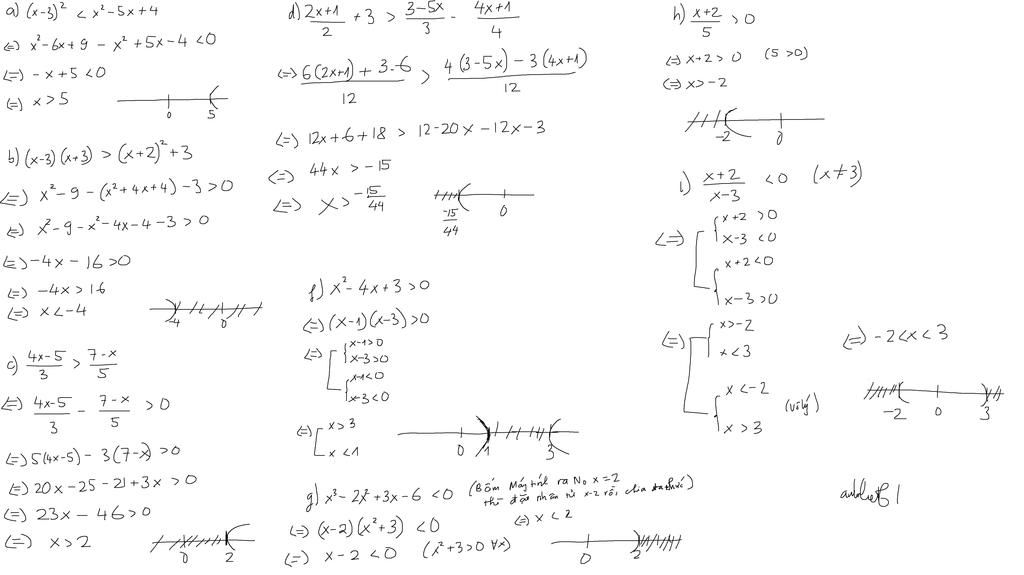 a) (x-3)² < x²-5x+4
(=) x²-6x+9 - x²+5x-4 <0
(=) -x+5 <0
(=) x>5
0 5
b) (x-3)(x+3) > (x+2)²+3
(=) x²-9-(x²+4x+4)-3>0
(=) x²-9-x²-4x-4-3>0
(=) -4x-16>0
(=) -4x>16
(=) x<-4
-4 0
c) (4x-5)/3 > (7-x)/5
(=) (4x-5)/3 - (7-x)/5 >0
(=) 5(4x-5) - 3(7-x) >0
(=) 20x-25-21+3x >0
(=) 23x - 46>0
(=) x>2
0 2
d) (2x+1)/2 +3 > (3-5x)/3 - (4x+1)/4
(=) (6(2x+1)+3.6)/12 > (4(3-5x)-3(4x+1))/12
(=) 12x+6+18 > 12-20x-12x-3
(=) 44x >-15
(=) x>-15/44
-15/44 0
f) x²-4x+3>0
(=) (x-1)(x-3)>0
(=) [ { x-1>0
x-3>0
{ x-1<0
x-3<0
(=) [ x>3
x<1
0 1 3
g) x³-2x²+3x-6 <0 (Bấm Máy tính ra No x=2
thì đặt nhân tử x-2 rồi chia)
(=) (x-2)(x²+3) <0
(=) x-2<0 (x²+3>0 ∀x)
(=) x<2
0 2
h) (x+2)/5 >0
(=) x+2>0 (5>0)
(=) x>-2
-2 0
i) (x+2)/(x-3) <0 (x≠3)
(=) [ { x+2>0
x-3<0
{ x+2<0
x-3>0
(=) [ { x>-2
x<3
{ x<-2
x>3 (vô lý)
(=) -2<x<3
-2 0 3